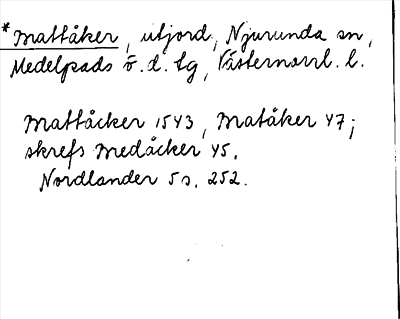 *Mattåker, utjord, Njurunda sn,
Medelpads ö. d. tg, Västernorrl. l.
Mattåcker 1543, Matåker 47;
skrefs Medåcker 45.
Nordlander 5 s. 252.